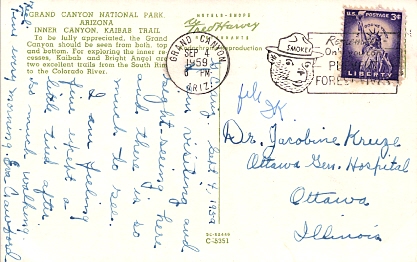 GRAND CANYON NATIONAL PARK
ARIZONA
INNER CANYON, KAIBAB TRAIL
To be fully appreciated, the Grand
Canyon should be seen from both, top
and bottom. For exploring the inner re-
cesses, Kaibab and Bright Angel are
two excellent trails from the South Rim
to the Colorado River.
HOTELS - SHOPS
Fred Harvey
RESTAURANTS
reproduction
GRAND CANYON
SEP 4
PM
1959
ARIZ.
SMOKEY
FOREST FIRES
U.S. POSTAGE
3¢
LIBERTY
Sept 4, 1959
visiting and
sight-seeing here
and there is so
much to see.
I am feeling
fine except a
little tired after
so much walking
this morning. Eva Crawford
Dr. Jacobine Kruze
Ottawa Gen. Hospital
Ottawa
Illinois
C-8351